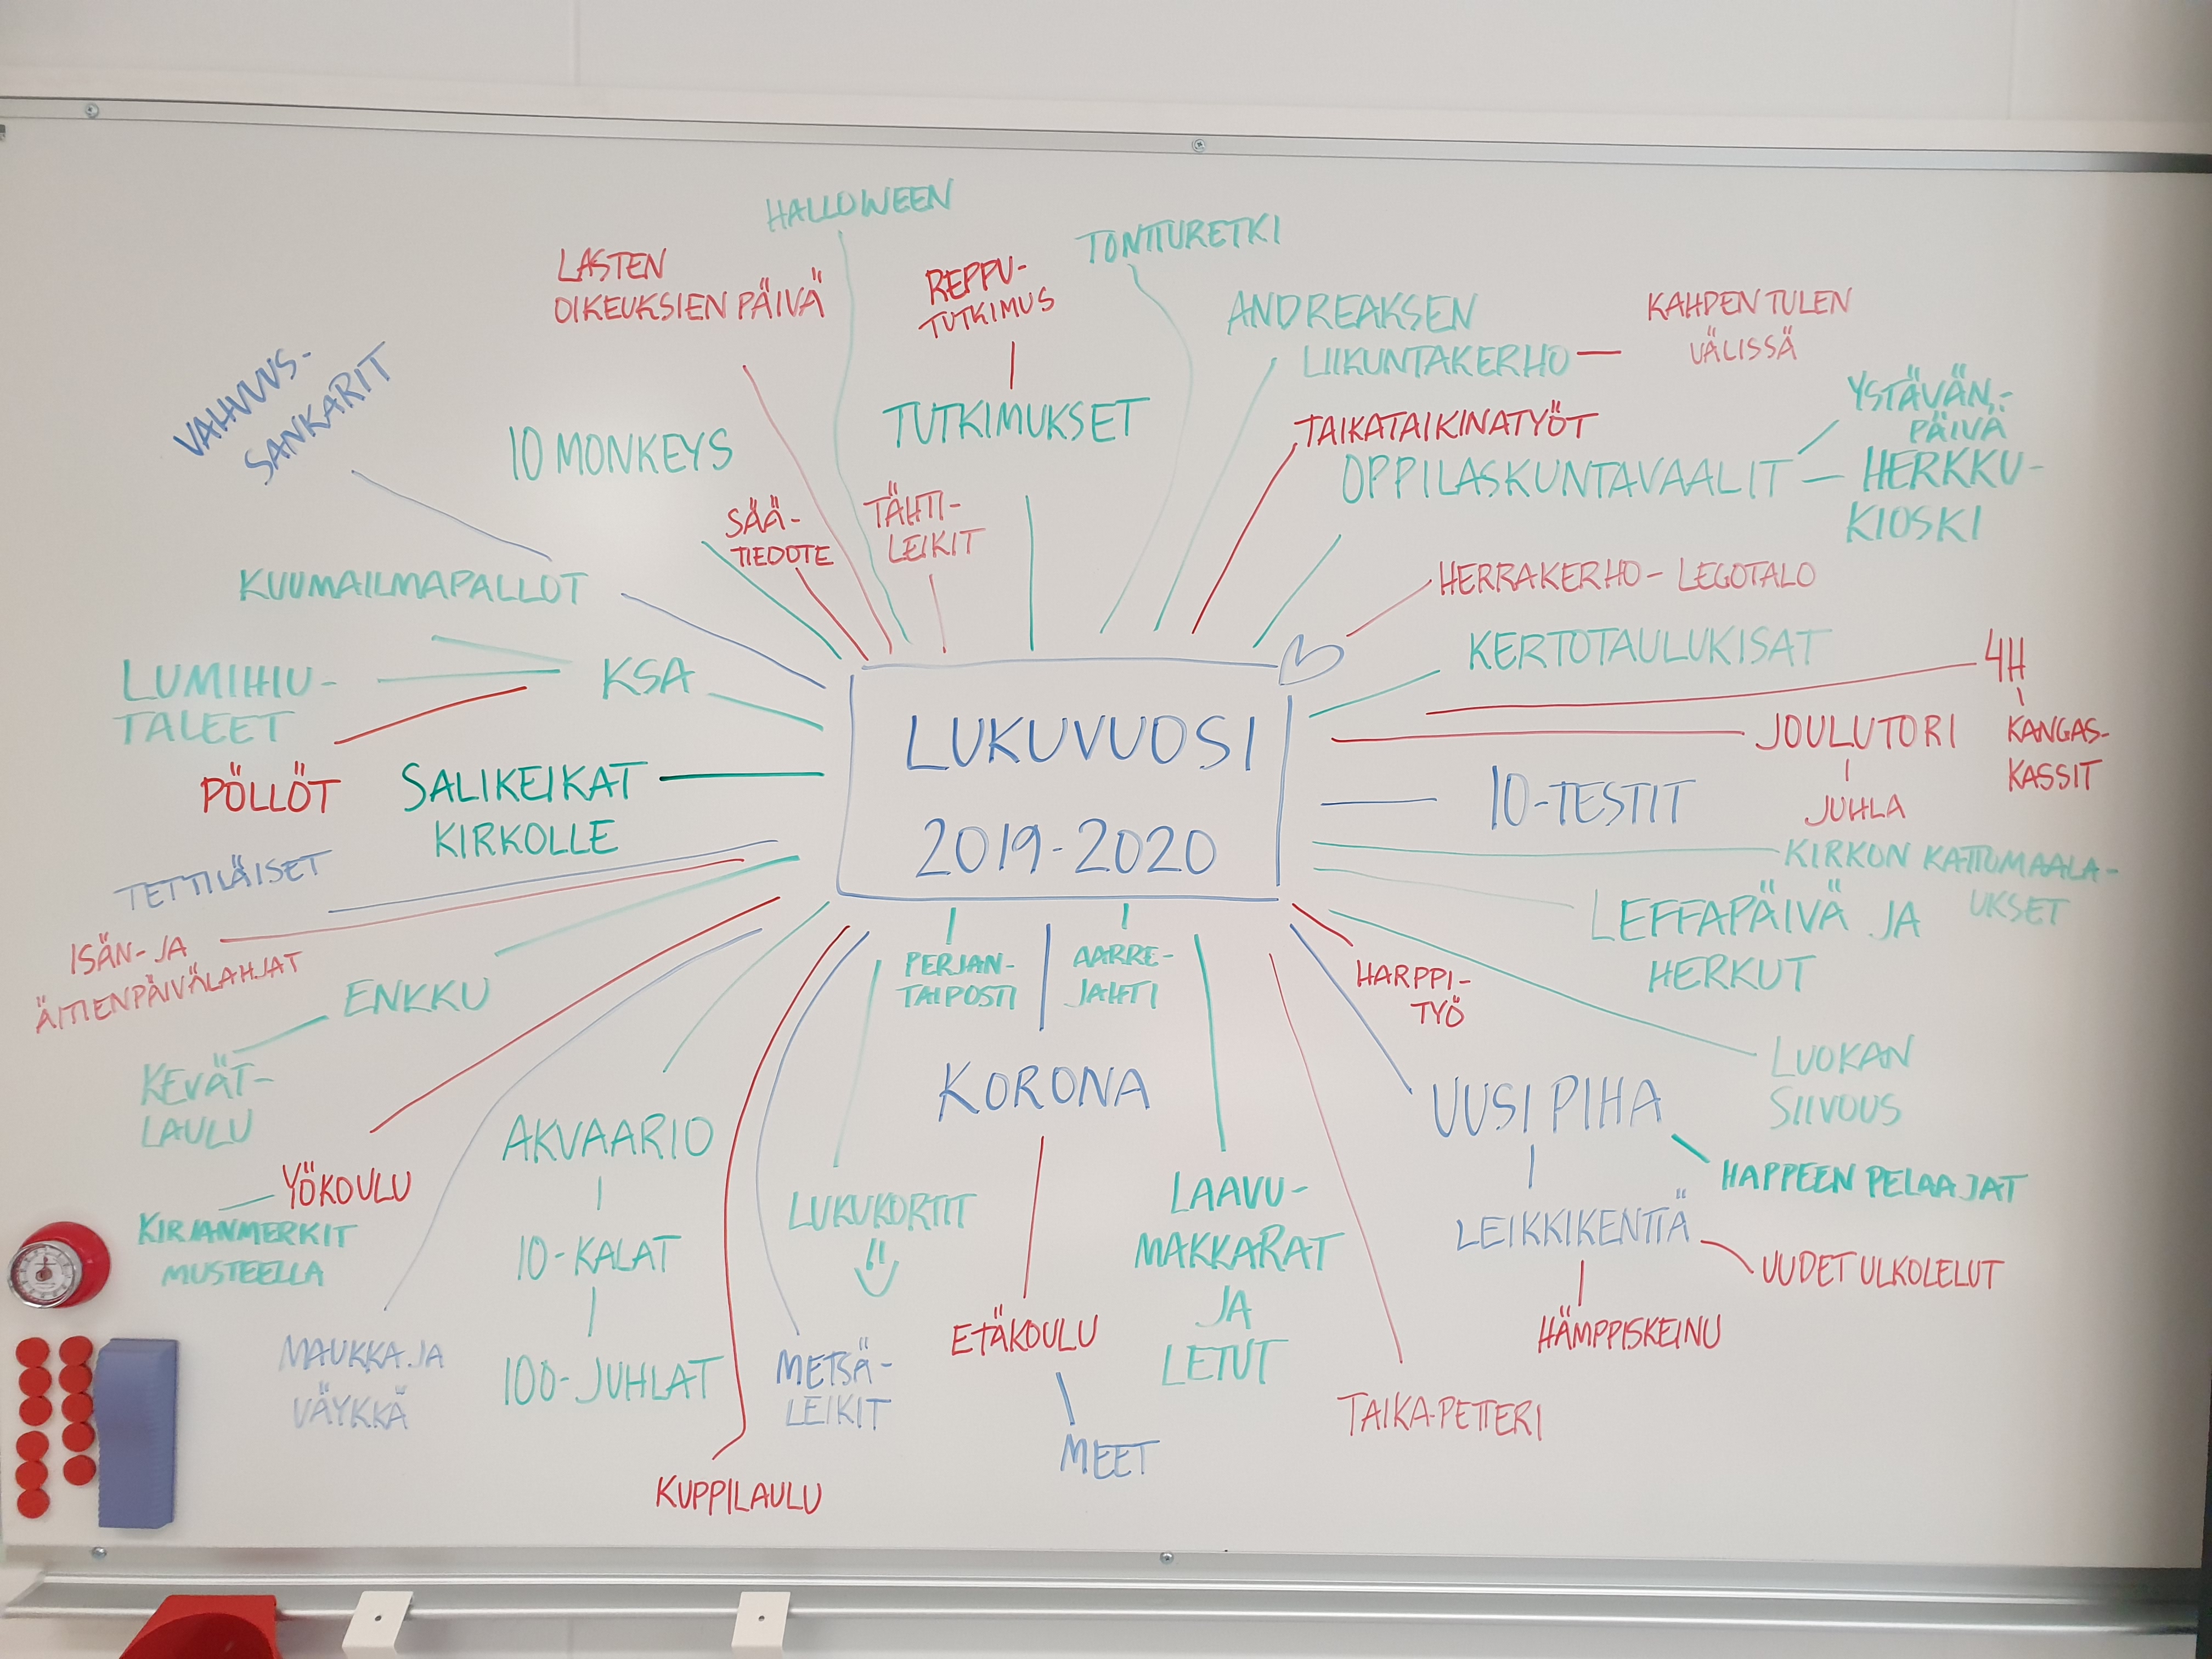 HALLOWEEN
TONTTURETKI
LASTEN
OIKEUKSIEN PÄIVÄ
REPPU-
TUTKIMUS
ANDREAKSEN
LIIKUNTAKERHO
KAHDEN TULEN
VÄLISSÄ
VAHVUUS-
SANKARIT
10 MONKEYS
TUTKIMUKSET
TAIKATAIKINATYÖT
OPPILASKUNTAVAALIT
YSTÄVÄN-
PÄIVÄ
HERKKU-
KIOSKI
SÄÄ-
TIEDOTE
TÄHTI-
LEIKIT
KUUMAILMAPALLOT
HERRAKERHO - LEGOTALO
KERTOTAULUKISAT
4H
KANGAS-
KASSIT
LUMIHIU-
TALEET
KSA
PÖLLÖT
SALIKEIKAT
KIRKOLLE
LUKUVUOSI
2019-2020
JOULUTORI
JUHLA
10-TESTIT
KIRKON KATTOMAALA-
UKSET
TETTILÄISET
ISÄN- JA
ÄITIENPÄIVÄLAHJAT
LEFFAPÄIVÄ JA
HERKUT
ENKKU
KEVÄT-
LAULU
PERJAN-
TAIPOSTI
AARRE-
JAHTI
HARPPI-
TYÖ
LUOKAN
SIIVOUS
KORONA
UUSI PIHA
HAPPEEN PELAAJAT
YÖKOULU
KIRJANMERKIT
MUSTEELLA
AKVAARIO
10-KALAT
100-JUHLAT
LUKUKORTIT
LAAVU-
MAKKARAT
JA
LETUT
LEIKKIKENTTÄ
UUDET ULKOLELUT
HÄMPPISKEINU
ETÄKOULU
MEET
MAUKKA JA
VÄYKKÄ
METSÄ-
LEIKIT
TAIKA-PETTERI
KUPPILAULU